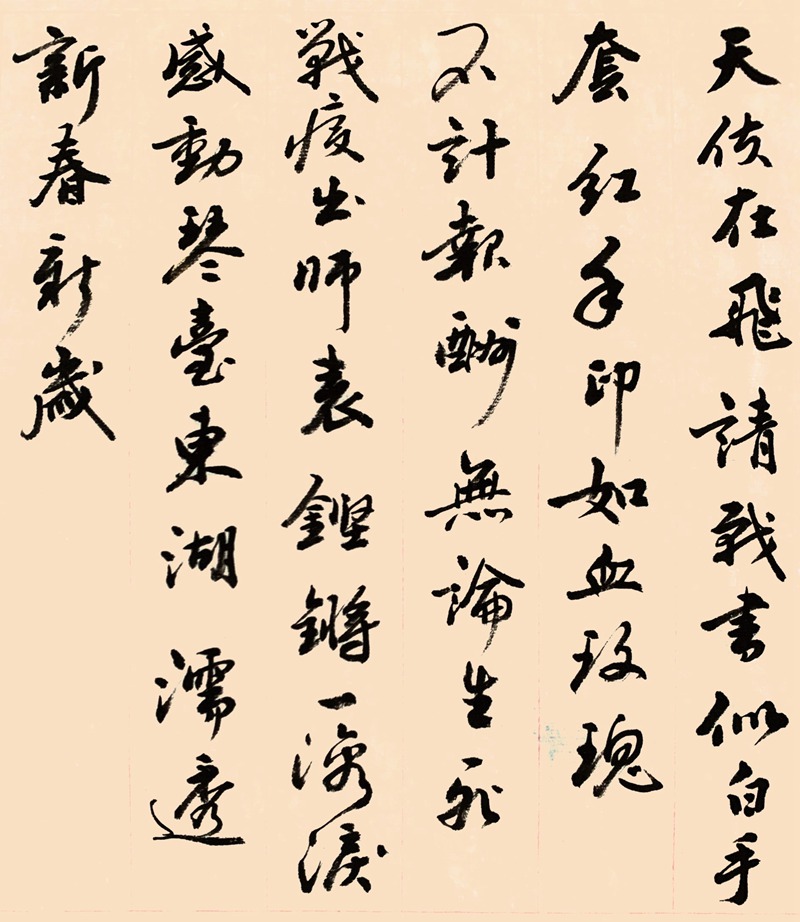 天使在飛請戰書似白手
套紅手印如血玫瑰
不計報酬無論生死
戰疫出師表鏗鏘一滴淚
感動琴臺東湖濡透
新春新歲